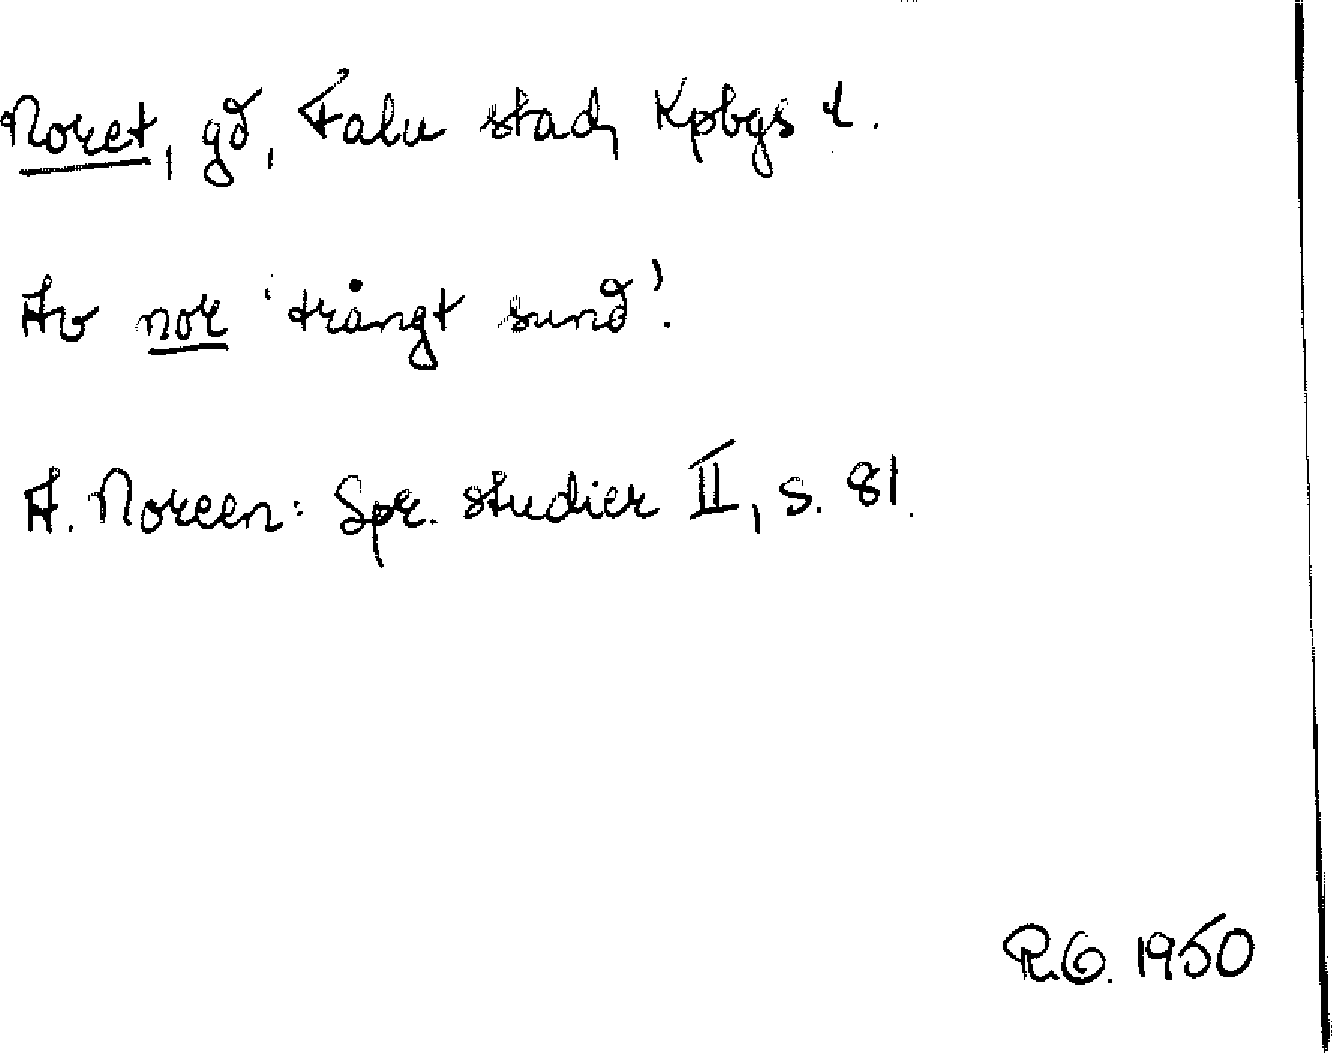 Noret, gd, Falu stad, Kpbgs l.
Av nor 'trångt sund'.
A. Noreen: Spr. studier II, s. 81.
R.G. 1950